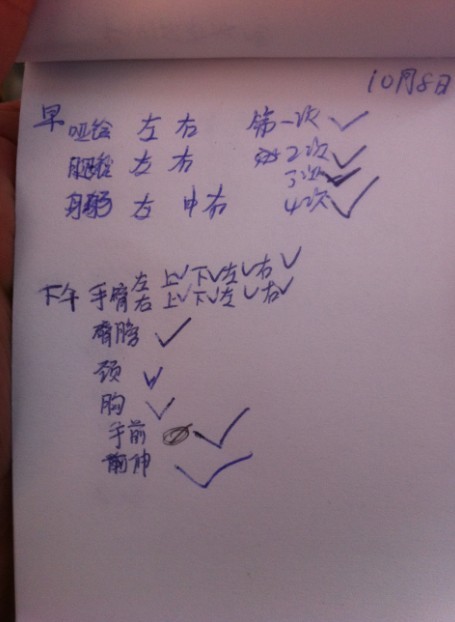 10月8日
早 哑铃 左 右 第一次 ✓
腿 左 右 2次 ✓
3次 ✓
左 中 右 4次 ✓
下午 手臂 左 上✓下✓左✓右✓
右 上✓下✓左✓右✓
✓
颈 ✓
胸 ✓
手前 ✓
前伸 ✓